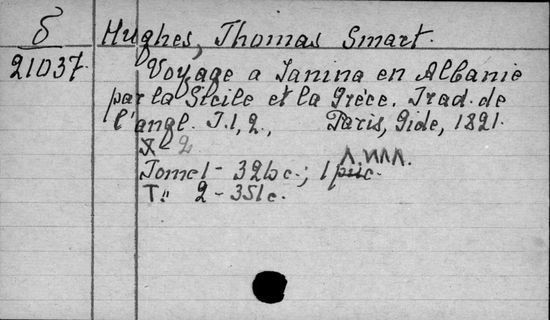 б Hughes, Thomas Smart.
21037. Voyage a Janina en Albanie
par la Sicile et la Grèce. Trad. de
l'angl. T.1, 2, Paris, Gide, 1821.
2
л. илл.
Tome 1 - 326 c.; 1 рис.
T." 2 - 351 c.